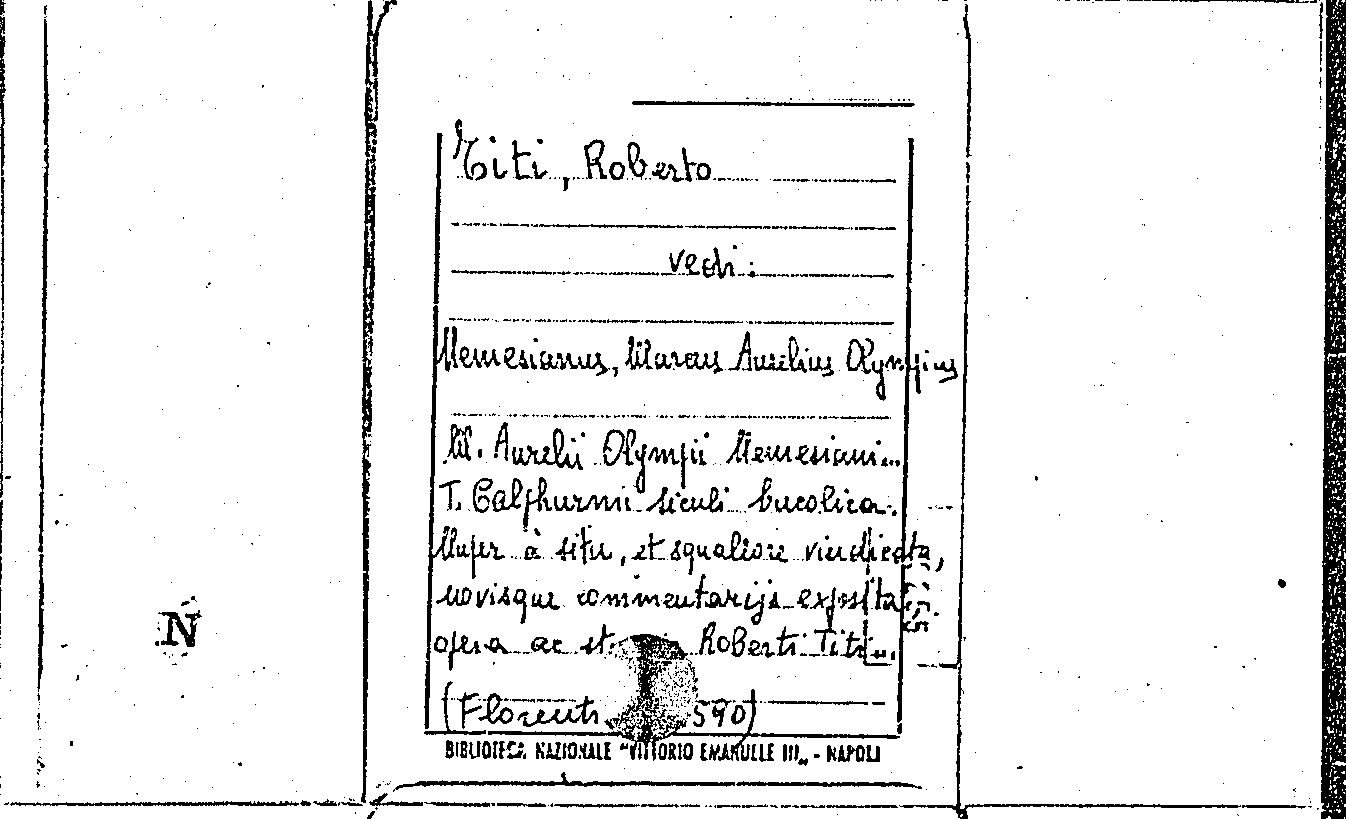 Titi, Roberto
vedi:
Nemesianus, Marcus Aurelius Olympius
M. Aurelii Olympii Nemesiani...
T. Calphurnii siculi bucolica.
Nuper à situ, et squalore vindicata,
novisque commentarijs exposita
opera ac Roberti Titi...
(Florenti 590)
BIBLIOTECA NAZIONALE "VITTORIO EMANUELE III„ - NAPOLI
N